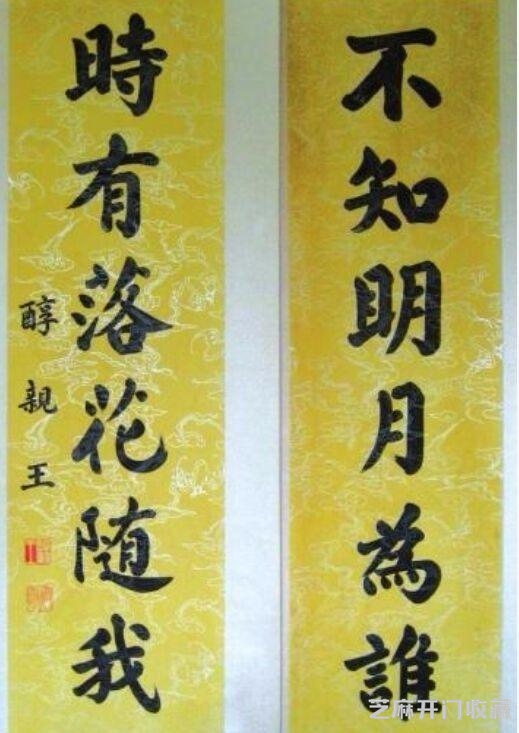 不知明月為誰
時有落花随我
醇親王
芝麻开门收藏